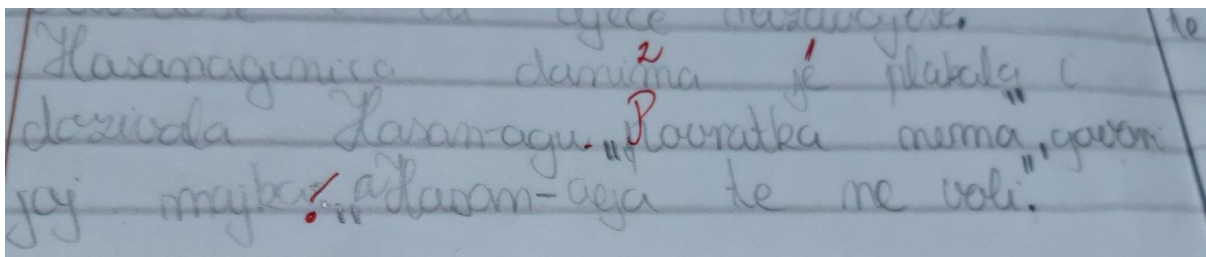 djece
te
Hasanaginica danima je plakala i
dozivala Hasan-agu. „Povratka nema", govori
joj majka, „a Hasan-aga te ne voli."